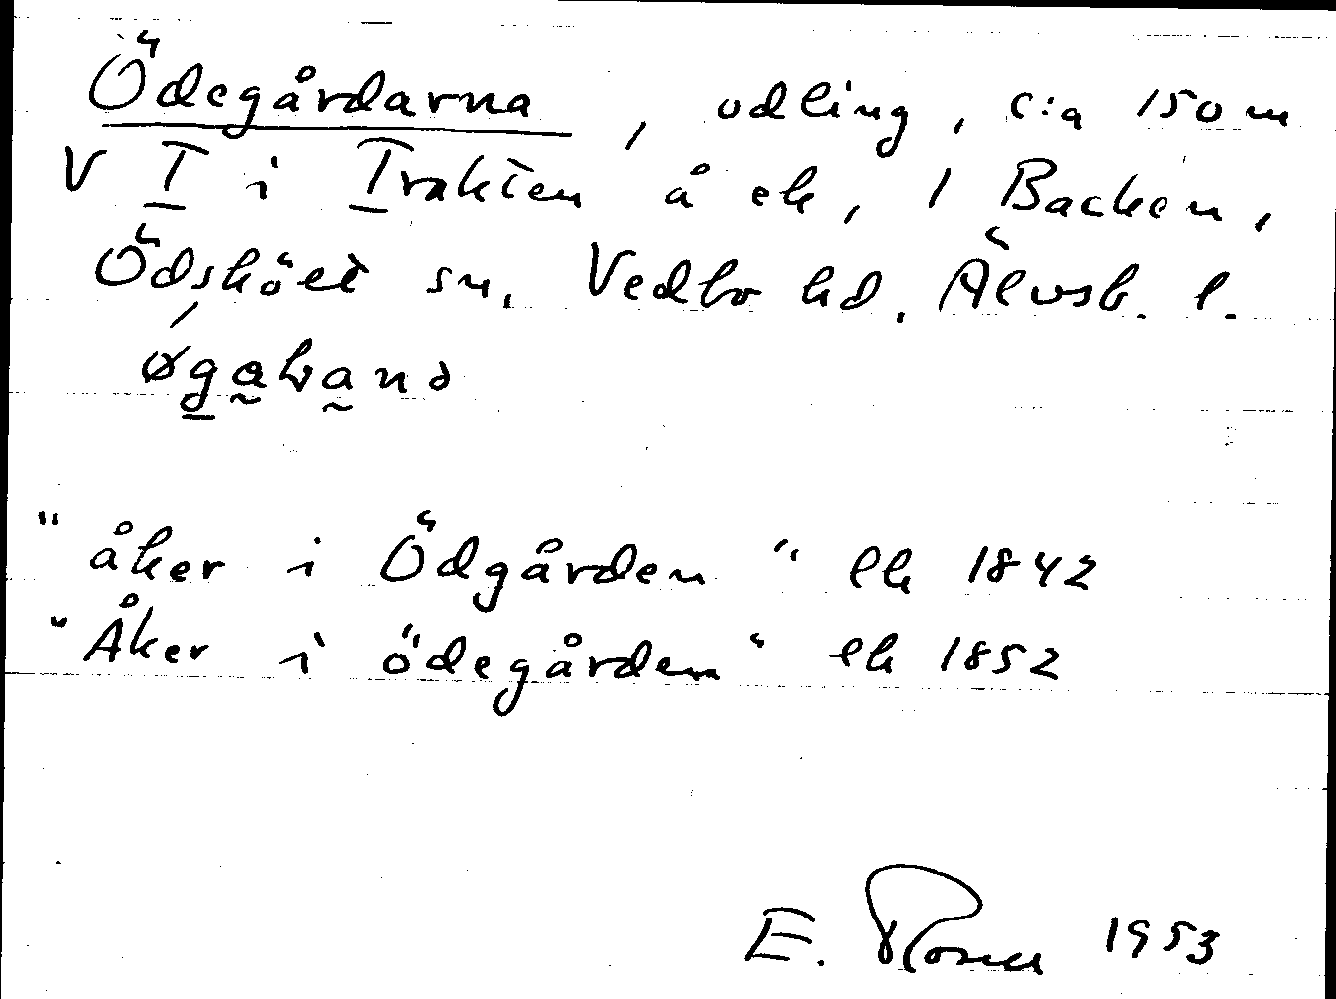 Ödegårdarna, odling, c:a 150 m
V T i Trakten å ek, 1 Backen,
Ödsköět sn, Vedbo hd. Älvsb. l.

"åker i Ödgården" ek 1842
"Åker i ödegården" ek 1852
E. 1953